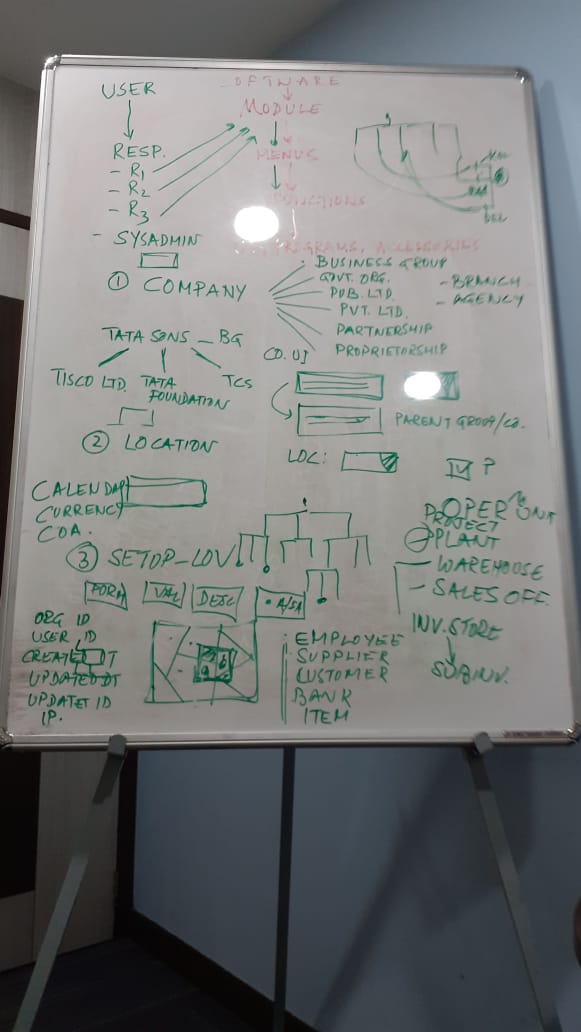 USER
RESP.
- R1
- R2
- R3
- SYSADMIN
OFTWARE
MODULE
MENUS
PROGRAMS, ACCESSORIES
DEL
① COMPANY
BUSINESS GROUP
GOVT. ORG.
PUB. LTD.
PVT. LTD.
PARTNERSHIP
PROPRIETORSHIP
- BRANCH
- AGENCY
TATA SONS - BG
TISCO LTD.
TATA FOUNDATION
TCS
CO. UI
PARENT GROUP/CO.
② LOCATION
LOC:
CALENDAR
CURRENCY
COA.
③ SETUP-LOV
FORM
VAL
DESC
• A/SA
OPER UNIT
PROJECT
PLANT
- WAREHOUSE
- SALES OFF.
INV. STORE
SUBINV.
ORG ID
USER ID
CREATED DT
UPDATED DT
UPDATET ID
IP.
: EMPLOYEE
SUPPLIER
CUSTOMER
BANK
ITEM